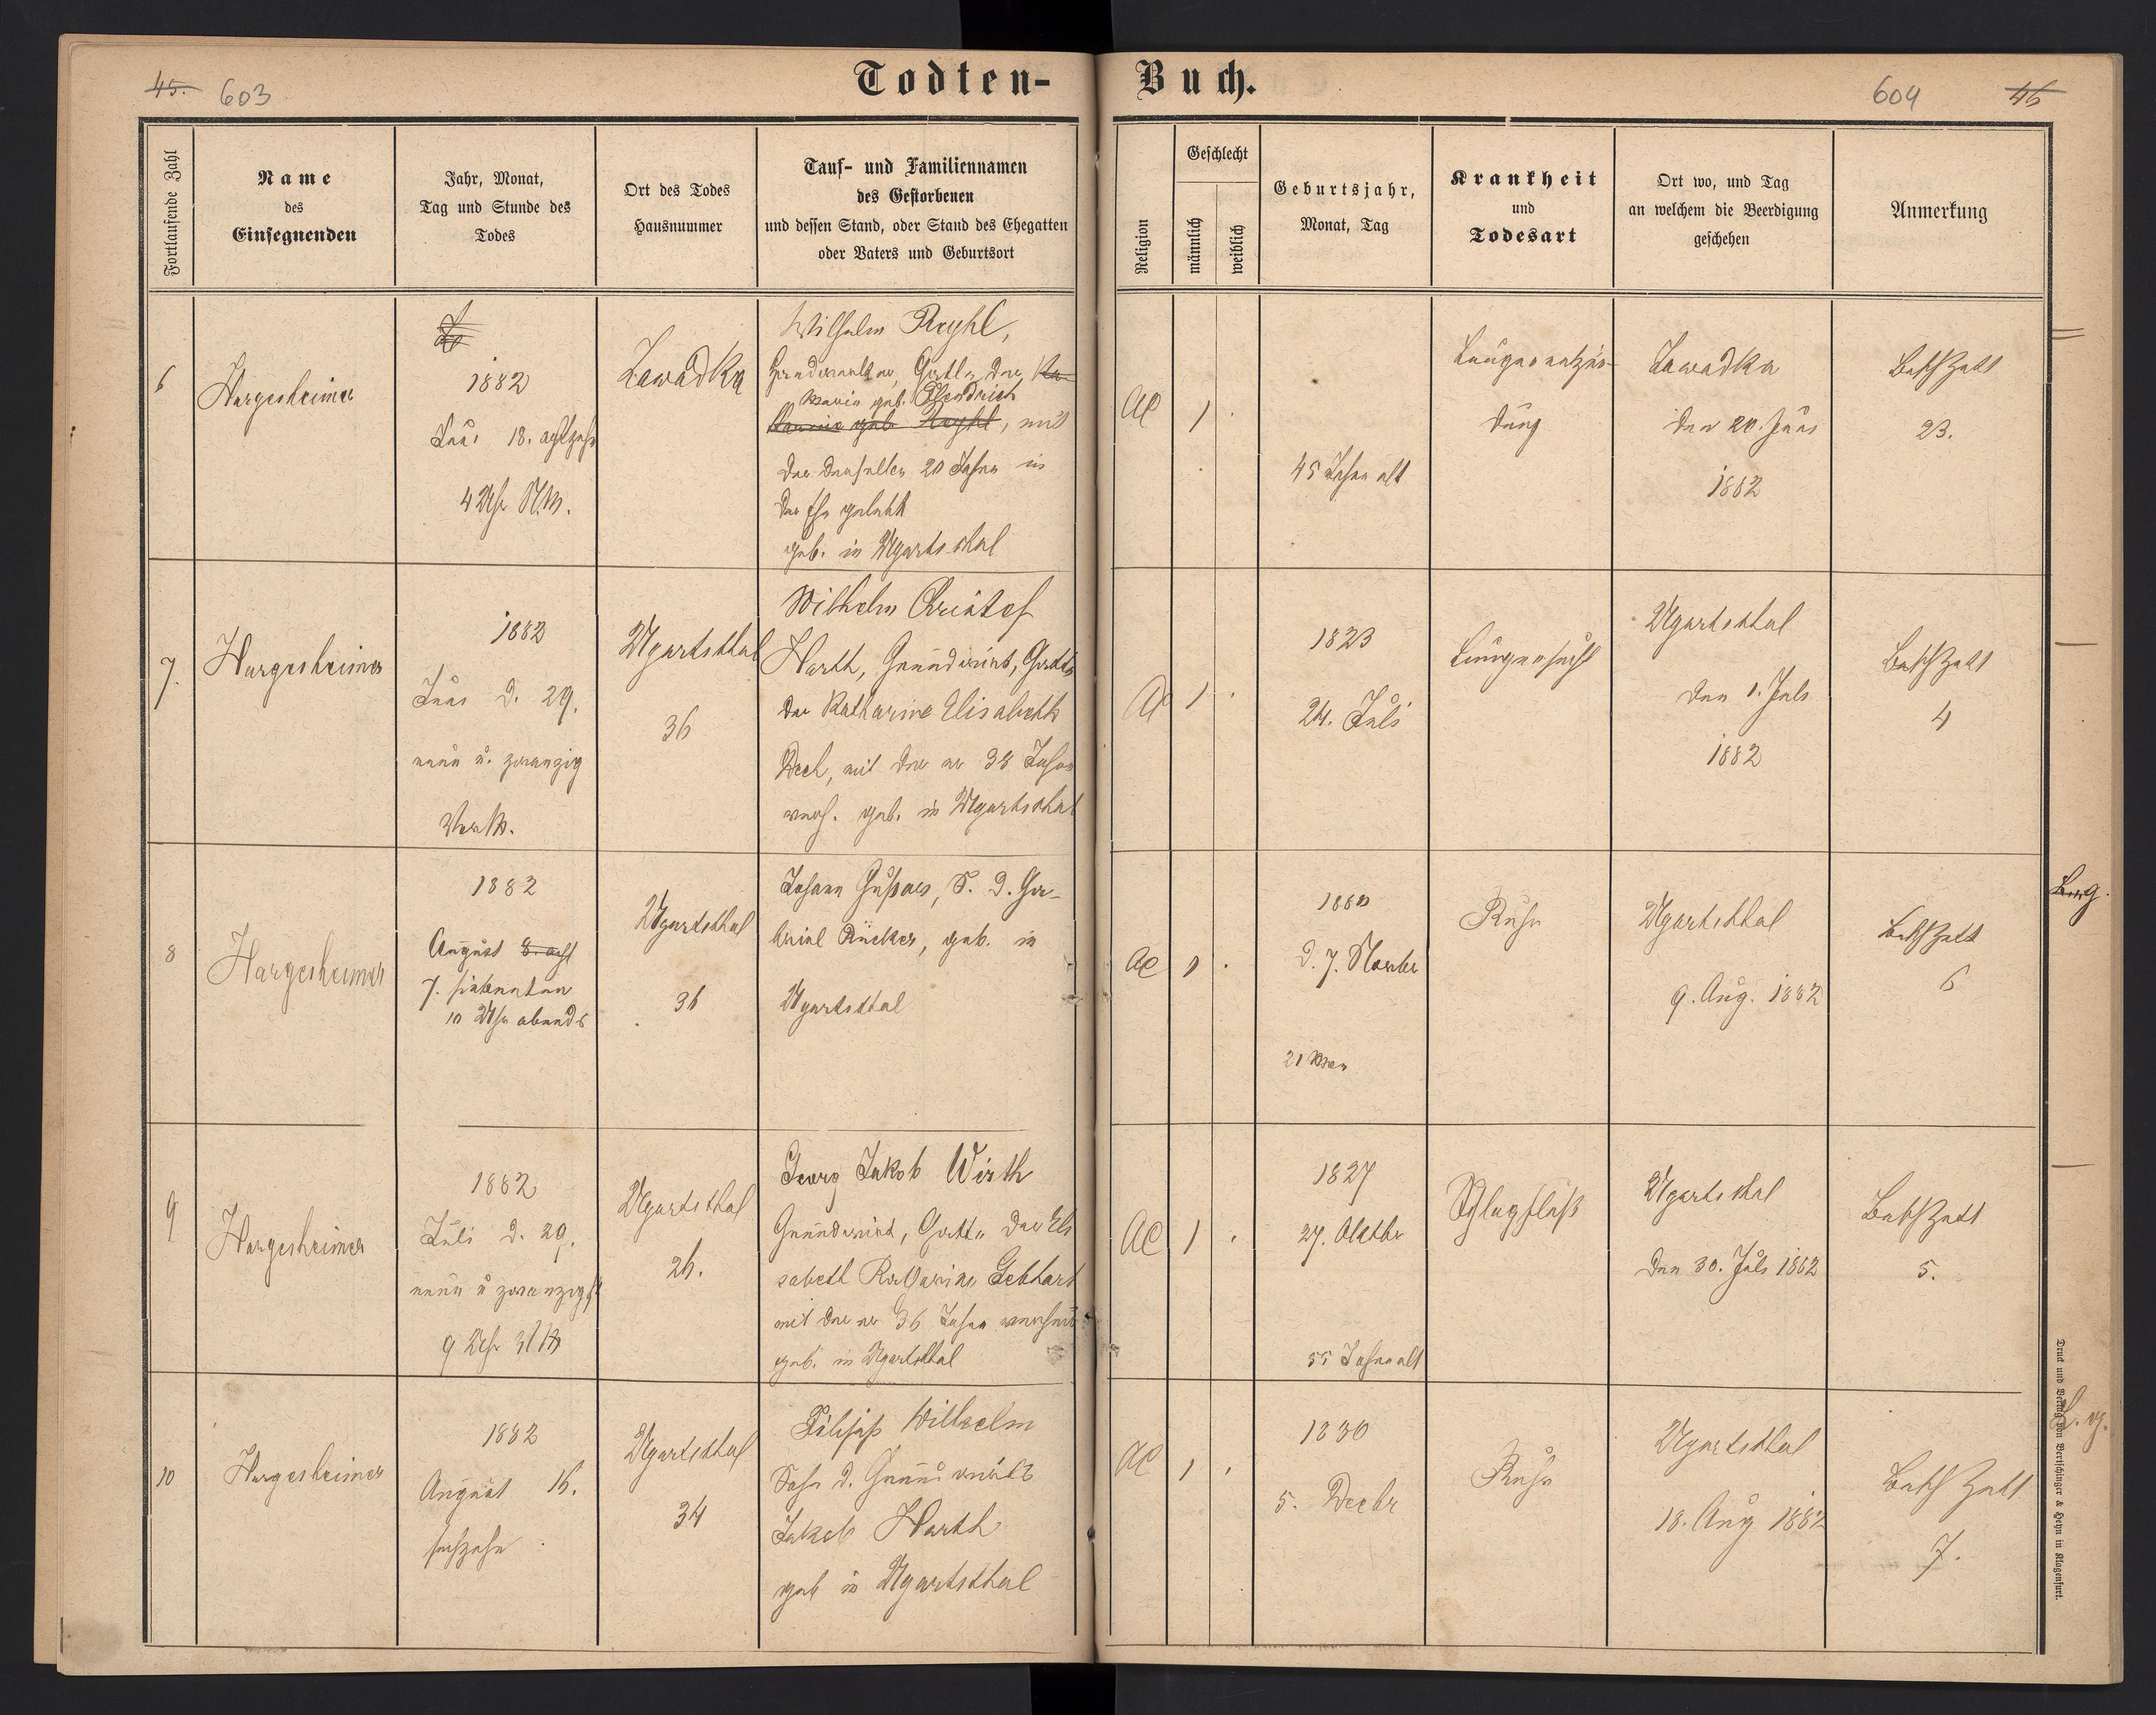 45. 603
Todten-
Buch.
604 46
Fortlaufende Zahl
Name
des
Einsegnenden
Jahr, Monat,
Tag und Stunde des
Todes
Ort des Todes
Hausnummer
Tauf- und Familiennamen
des Gestorbenen
und dessen Stand, oder Stand des Ehegatten
oder Vaters und Geburtsort
Religion
Geschlecht
männlich
weiblich
Geburtsjahr,
Monat, Tag
Krankheit
und
Todesart
Ort wo, und Tag
an welchem die Beerdigung
geschehen
Anmerkung
6
Hargesheimer
1882
Juni 18. achtzehn
4 Uhr N.M.
Zawadka
Wilhelm Reyhl,
Gatte der
Maria geb.
geb. Reyhl, mit
der derselbe 20 Jahre in
der Ehe gelebt
geb. in Ugartsthal
AC 1
45 Jahre alt
Lungenentzün-
dung
Zawadka
den 20. Juni
1882
23.
7.
Hargesheimer
1882
Juni d. 29.
neun u. zwanzig
Ugartsthal
36
Wilhelm Christof
Harth, Grundwirt, Gatte
der Katharine Elisabeth
Bech, mit der er 38 Jahre
geb. in Ugartsthal
1
1823
24. Juli
Lungensucht
Ugartsthal
den 1. Juli
1882
4
8
Hargesheimer
1882
August 8. acht
7. siebenten
10 Uhr abends
Ugartsthal
36
Johann S. d. Ga-
briel Rücker, geb. in
Ugartsthal
AC 1
1880
d. 7. November
21 Mon
Ruhr
Ugartsthal
9. Aug. 1882
6
9
Hargesheimer
1882
Juli d. 29.
neun u zwanzigst
9 Uhr
Ugartsthal
26.
Georg Jakob Wirth
Grundwirt, Gatte der Eli
sabeth Katharine Gebhart
mit der er 36 Jahre
geb. in Ugartsthal
AC 1
1827
27. Oktober
55 Jahre alt
Schlagfluß
Ugartsthal
den 30. Juli 1882
5.
10
Hargesheimer
1882
August 16.
sechzehn
Ugartsthal
34
Filipp Wilhelm
Sohn d. Grundwirt
Jakob Harth
geb in Ugartsthal
AC 1
1880
5. Decbr
Ruhr
Ugartsthal
18. Aug 1882
7.
Druck und Verlag von Bertschinger & Heyn in Klagenfurt.